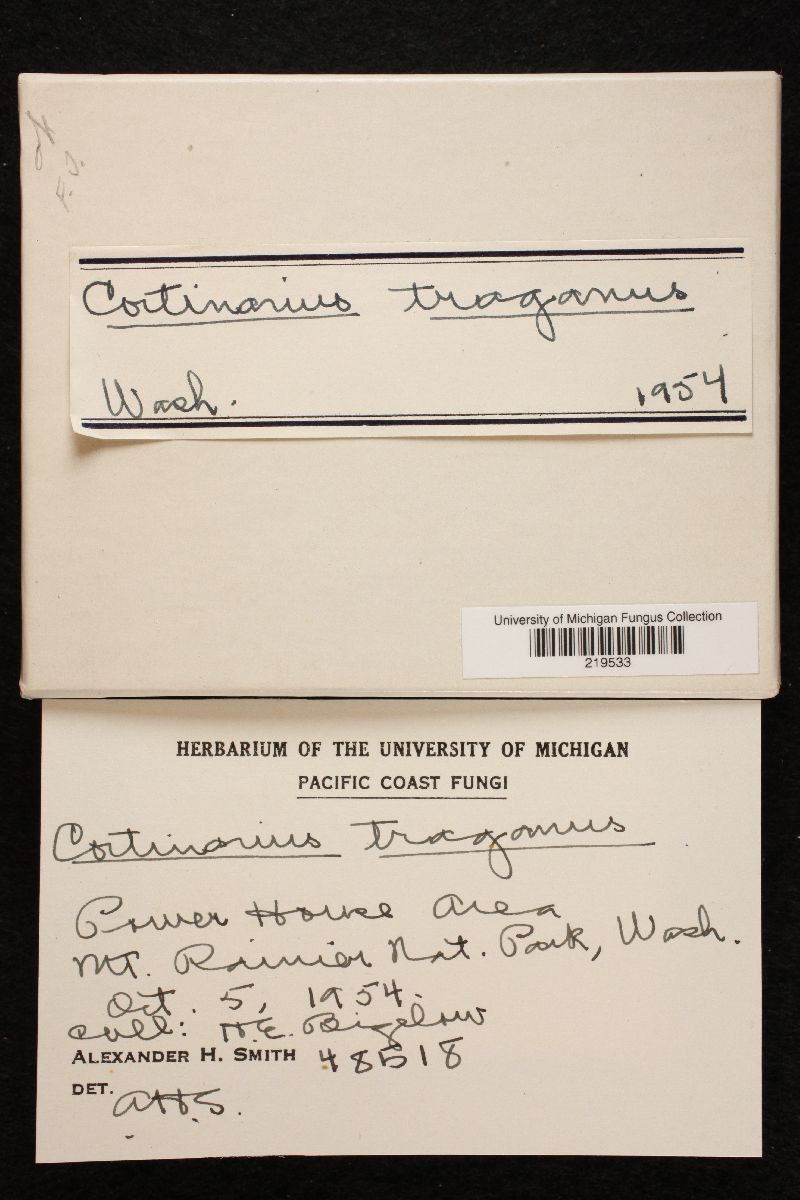 ok
F.J.
Cortinarius traganus
Wash. 1954
University of Michigan Fungus Collection
219533
HERBARIUM OF THE UNIVERSITY OF MICHIGAN
PACIFIC COAST FUNGI
Cortinarius traganus
Power House Area
Mt. Rainier Nat. Park, Wash.
Oct. 5, 1954.
coll: H.E. Bigelow
ALEXANDER H. SMITH 48518
DET. AHS.